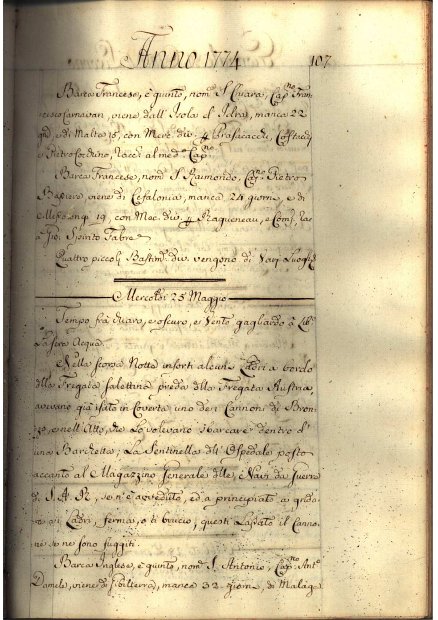 Anno 1774
107
Barca Francese, è giunto, nom.ta S. Chiara, Cap.no Fran-
cesco Carnavan, viene dall'Isola di Idra, manca 22
g.ni e di Malta 15, con Merc. div. p
e Pietro Cordino, Racc. al med.o Cap.no
Barca Francese, nom.ta S. Raimondo, Cap.no Pietro
viene di Cefalonia, manca 24 giorni, e di
Messina 19, con Mec. div. p Ragueneau, e Comp. Rac.
a Gio. Spirito Fabre
Quattro piccoli Bastim.ti div. vengono di Varj Luoghi
Mercoldì 25 Maggio
Tempo frà chiaro, e oscuro, e Vento gagliardo à Lib.o
La sera Acqua.
Nella scorsa Notte insorti alcuni Ladri a bordo
della Fregata Salettina preda della Fregata Austria
avevano già issato in Coverta uno dei Cannoni di Bron-
zo, e nell'Atto, che lo volevano sbarcare dentro d'
una Barchetta; La Sentinella dell'Ospedale posto
accanto al Magazzino Generale delle Navi da Guerra
di S. A. R., se n'è avveduto, ed a principiato a grida-
re ai Ladri, ferma, o ti brucio, questi lassato il Canno-
ne se ne sono fuggiti
Barca Inglese, è giunto, nom.ta S. Antonio, Cap.no Ant.o
Damele, viene di Gibilterra, manca 32 giorni, di Malag.a